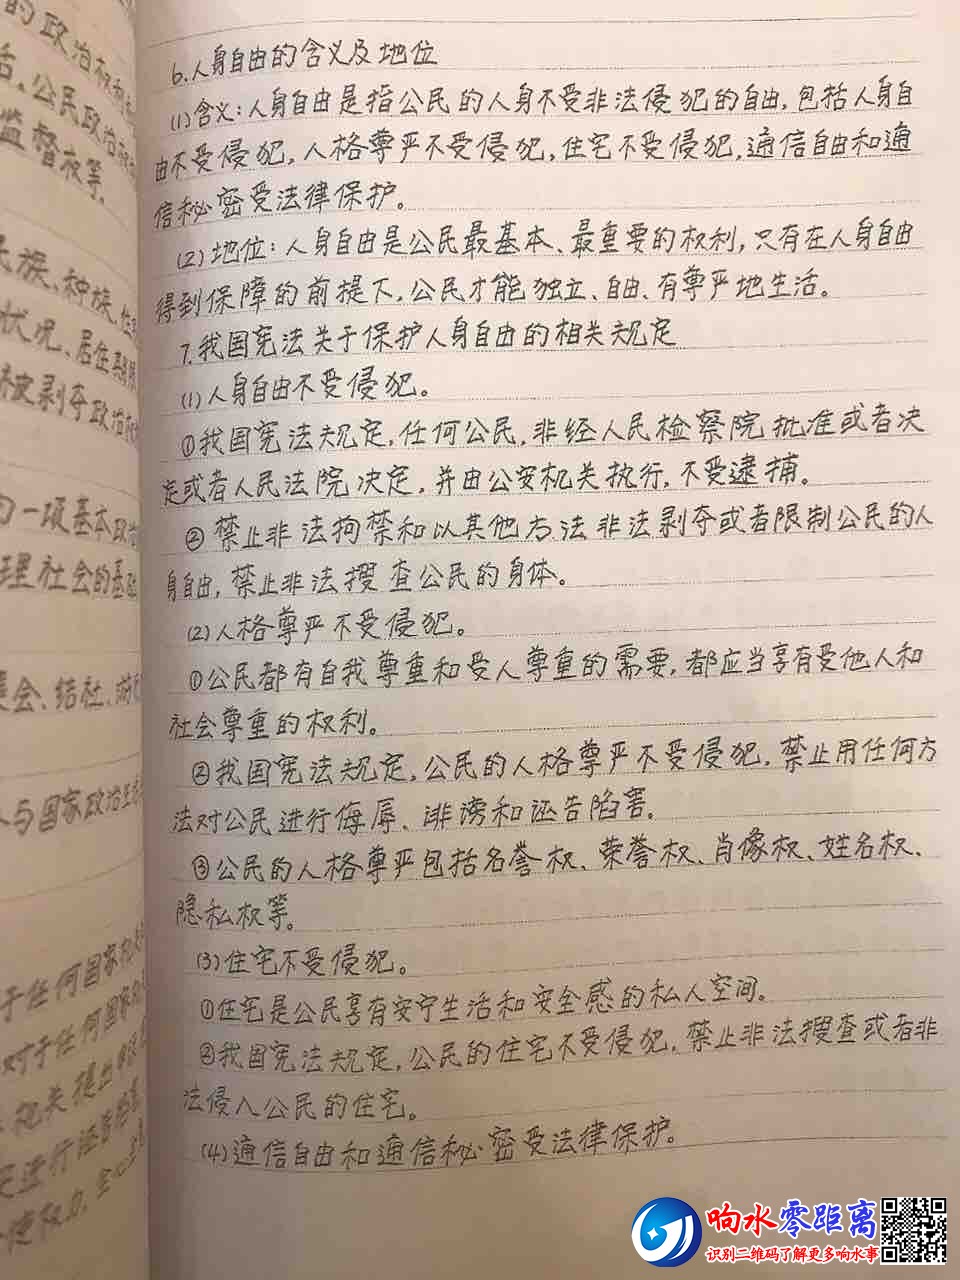 的政治权利
活。公民政治
监督权等。
民族、种族、性
状况、居住
被剥夺政治
的一项基本政治
理社会的基础
集会、结社、游
与国家政治生活
于任何国家
对于任何国家
机关提出
6.人身自由的含义及地位
(1)含义:人身自由是指公民的人身不受非法侵犯的自由,包括人身自
由不受侵犯,人格尊严不受侵犯,住宅不受侵犯,通信自由和通
信秘密受法律保护。
(2)地位:人身自由是公民最基本、最重要的权利,只有在人身自由
得到保障的前提下,公民才能独立、自由、有尊严地生活。
7.我国宪法关于保护人身自由的相关规定
(1)人身自由不受侵犯。
①我国宪法规定,任何公民,非经人民检察院批准或者决
定或者人民法院决定,并由公安机关执行,不受逮捕。
②禁止非法拘禁和以其他方法非法剥夺或者限制公民的人
身自由,禁止非法搜查公民的身体。
(2)人格尊严不受侵犯。
①公民都有自我尊重和受人尊重的需要,都应当享有受他人和
社会尊重的权利。
②我国宪法规定,公民的人格尊严不受侵犯,禁止用任何方
法对公民进行侮辱、诽谤和诬告陷害。
③公民的人格尊严包括名誉权、荣誉权、肖像权、姓名权、
隐私权等。
(3)住宅不受侵犯。
①住宅是公民享有安宁生活和安全感的私人空间。
②我国宪法规定,公民的住宅不受侵犯,禁止非法搜查或者非
法侵入公民的住宅。
(4)通信自由和通信秘密受法律保护。
响水零距离
识别二维码了解更多响水事